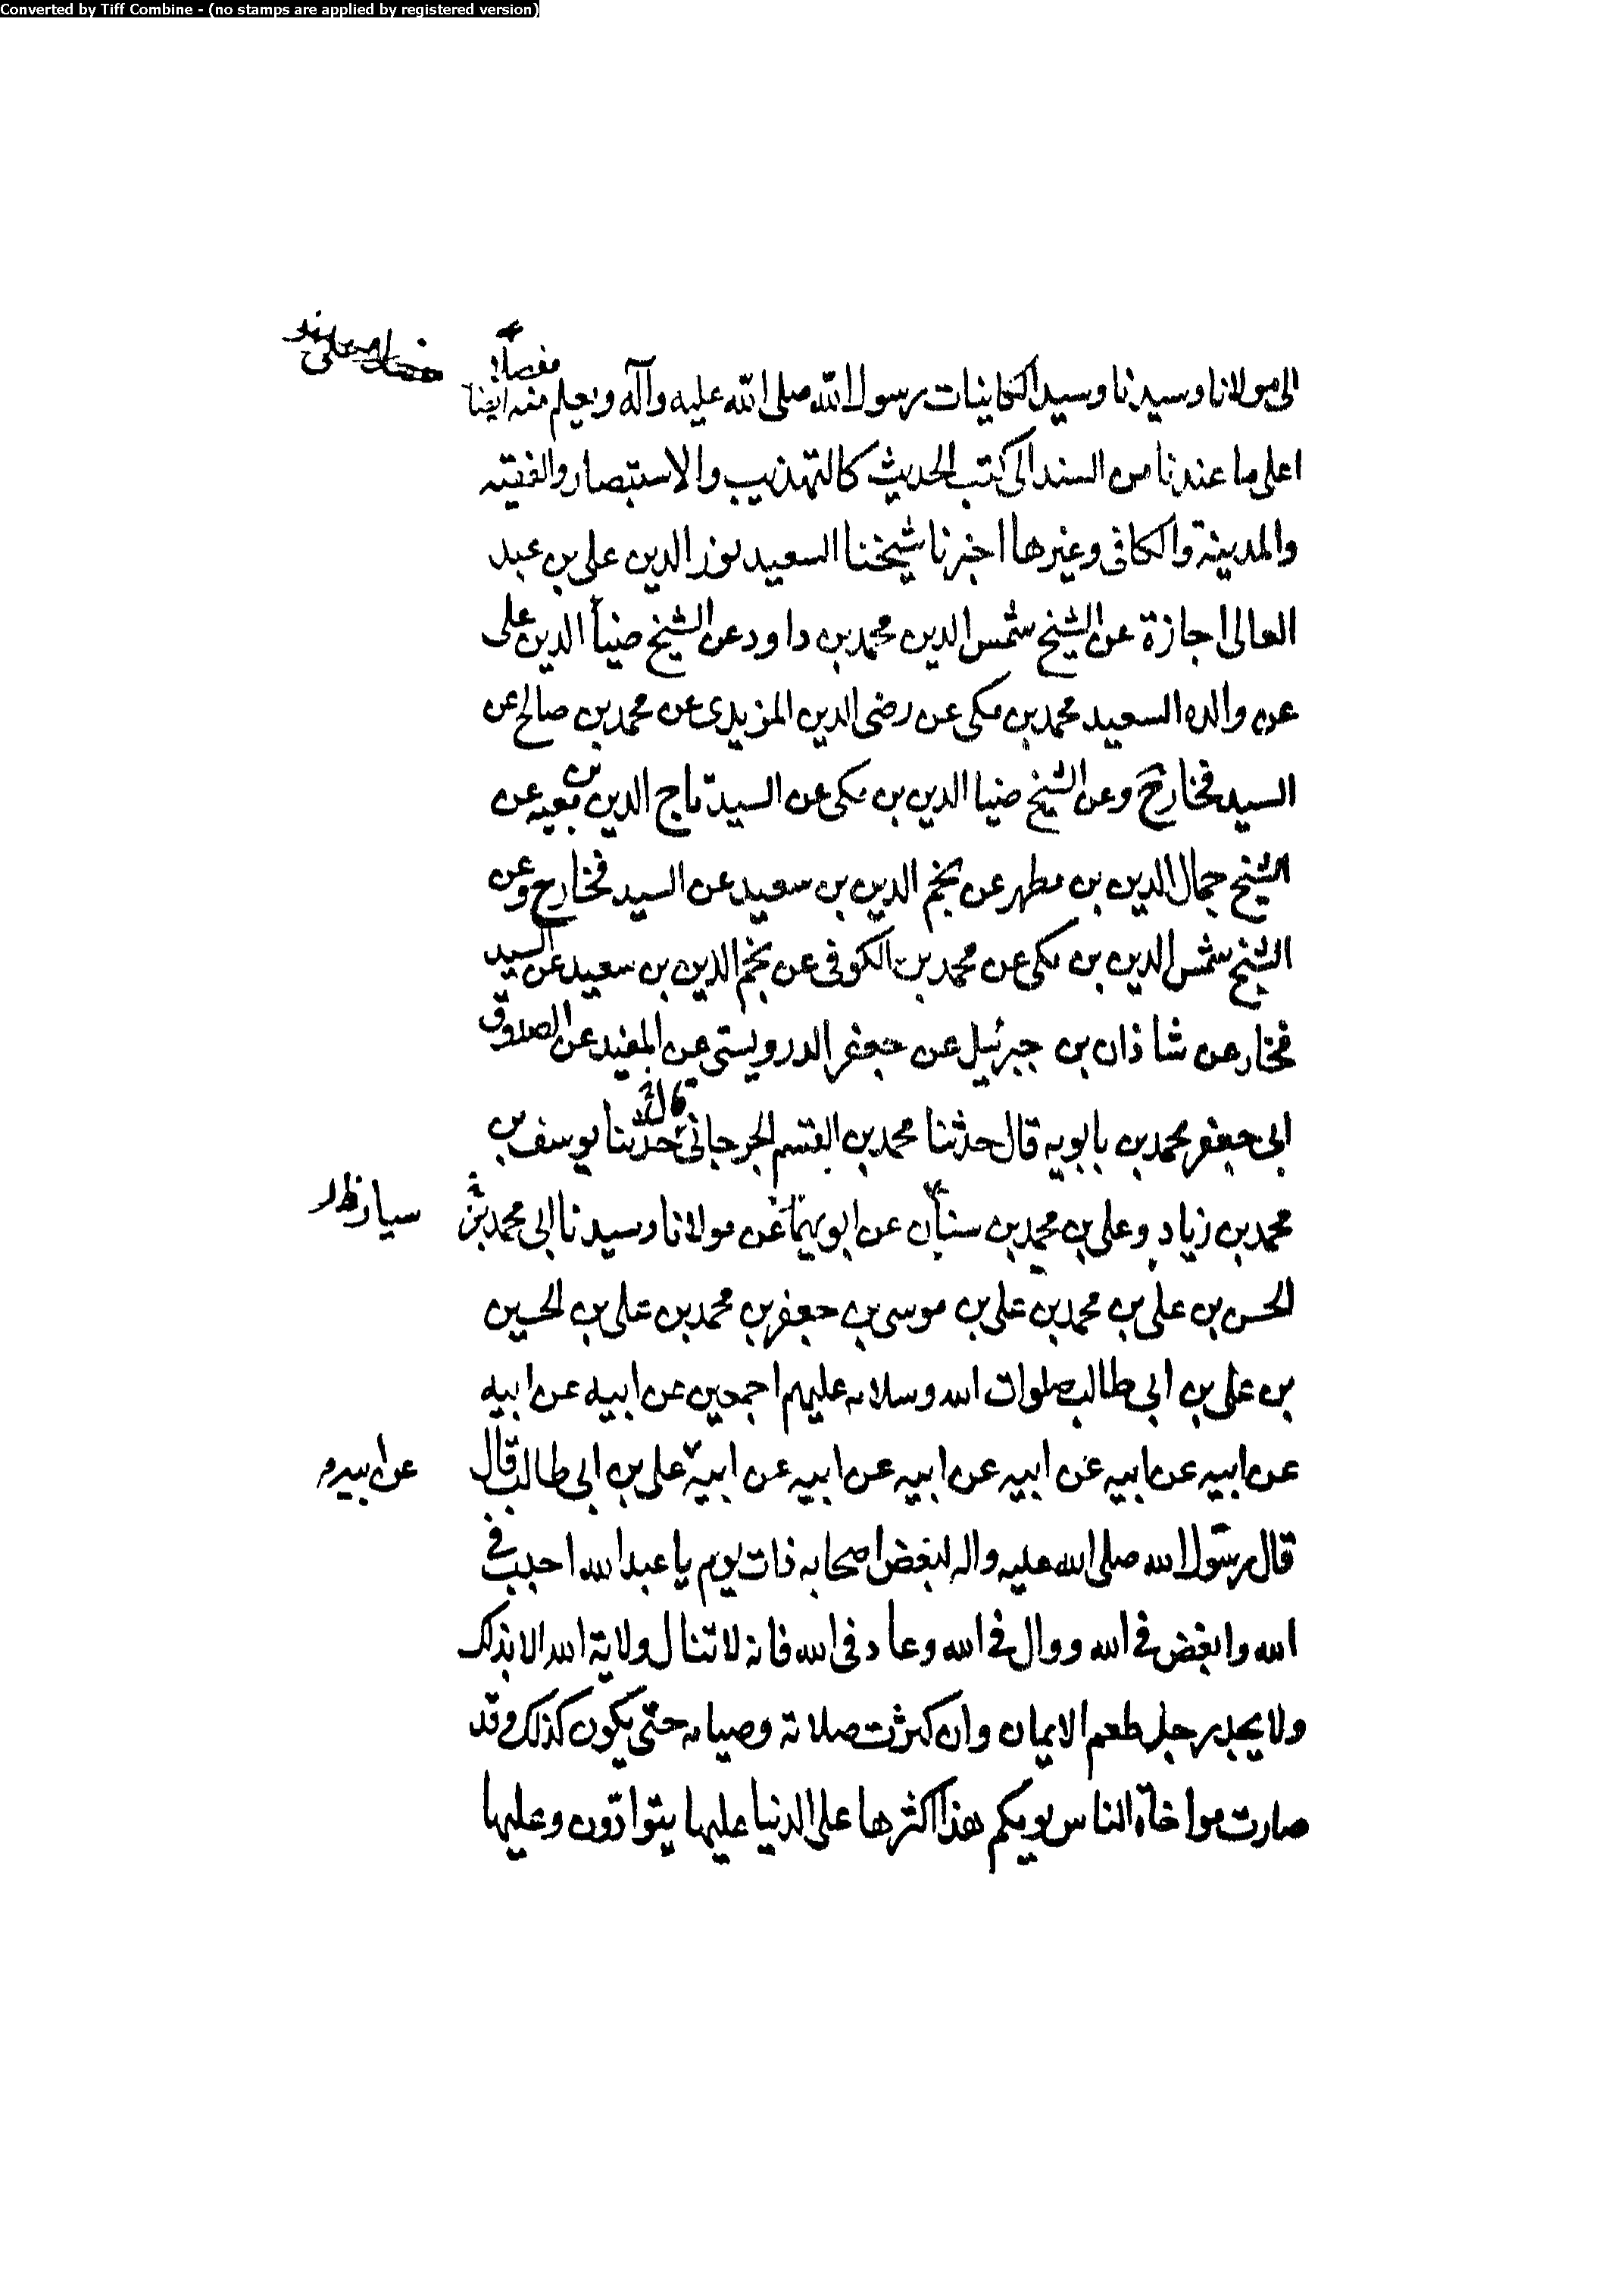 Converted by Tiff Combine - (no stamps are applied by registered version)
مفصلا
الى مولانا وسيدنا وسيد الكائنات رسول الله صلى الله عليه وآله ويعلم منه ايضا
اعلى ما عندنا من السند الى كتب الحديث كالتهذيب والاستبصار والفقيه
والمدينة والكافى وغيرها اخبرنا شيخنا السعيد نور الدين على بن عبد
العالى اجازة عن الشيخ شمس الدين محمد بن داود عن الشيخ ضياء الدين على
عن والده السعيد محمد بن مكى عن رضى الدين المزيدى عن محمد بن صالح عن
السيد فخار ح وعن الشيخ ضيا الدين بن مكى عن السيد تاج الدين بن معيه عن
الشيخ جمال الدين بن مطهر عن نجم الدين بن سعيد عن السيد فخار ح وعن
الشيخ شمس الدين بن مكى عن محمد بن الكوفى عن نجم الدين بن سعيد عن السيد
فخار عن شاذان بن جبرئيل عن جعفر الدرويستى عن المفيد عن الصدوق
ابى جعفر محمد بن بابويه قال حدثنا محمد بن القسم الجرجانى قال حدثنا يوسف بن
محمد بن زياد وعلى بن محمد بن سنان عن ابويهما عن مولانا وسيدنا ابى محمد
سيار ظ
الحسن بن على بن محمد بن على بن موسى بن جعفر بن محمد بن على بن الحسين
بن على بن ابى طالب صلوات الله وسلامه عليهم اجمعين عن ابيه عن ابيه
عن ابيه عن ابيه عن ابيه عن ابيه عن ابيه عن ابيه على بن ابى طالب قال
عن ابيه
قال رسول الله صلى الله عليه واله لبعض اصحابه ذات يوم يا عبد الله احبب فى
الله وابغض فى الله ووال فى الله وعاد فى الله فانه لا تنال ولاية الله الا بذلك
ولا يجد رجل طعم الايمان وان كثرت صلاته وصيامه حتى يكون كذلك وقد
صارت مواخاة الناس يومكم هذا اكثرها على الدنيا عليها يتوادون وعليها